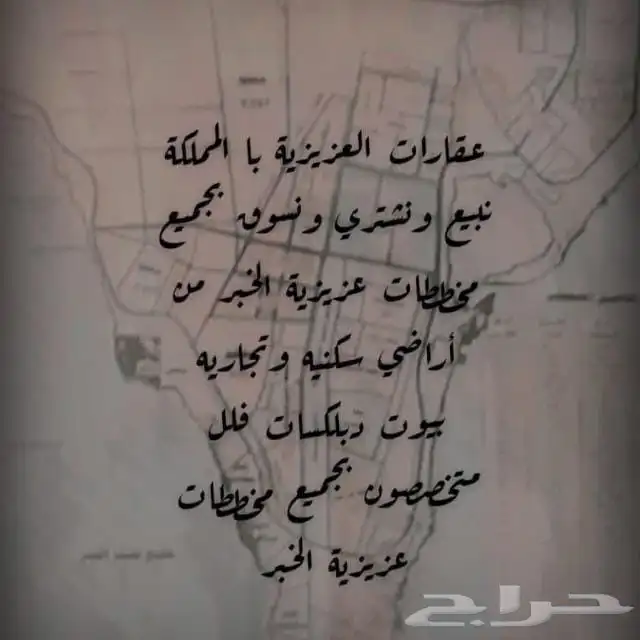 عقارات العزيزية با المملكة
نبيع ونشتري ونسوق بجميع
مخططات عزيزية الخبر من
أراضي سكنيه وتجاريه
بيوت دبلكسات فلل
متخصصون بجميع مخططات
عزيزية الخبر
حراج